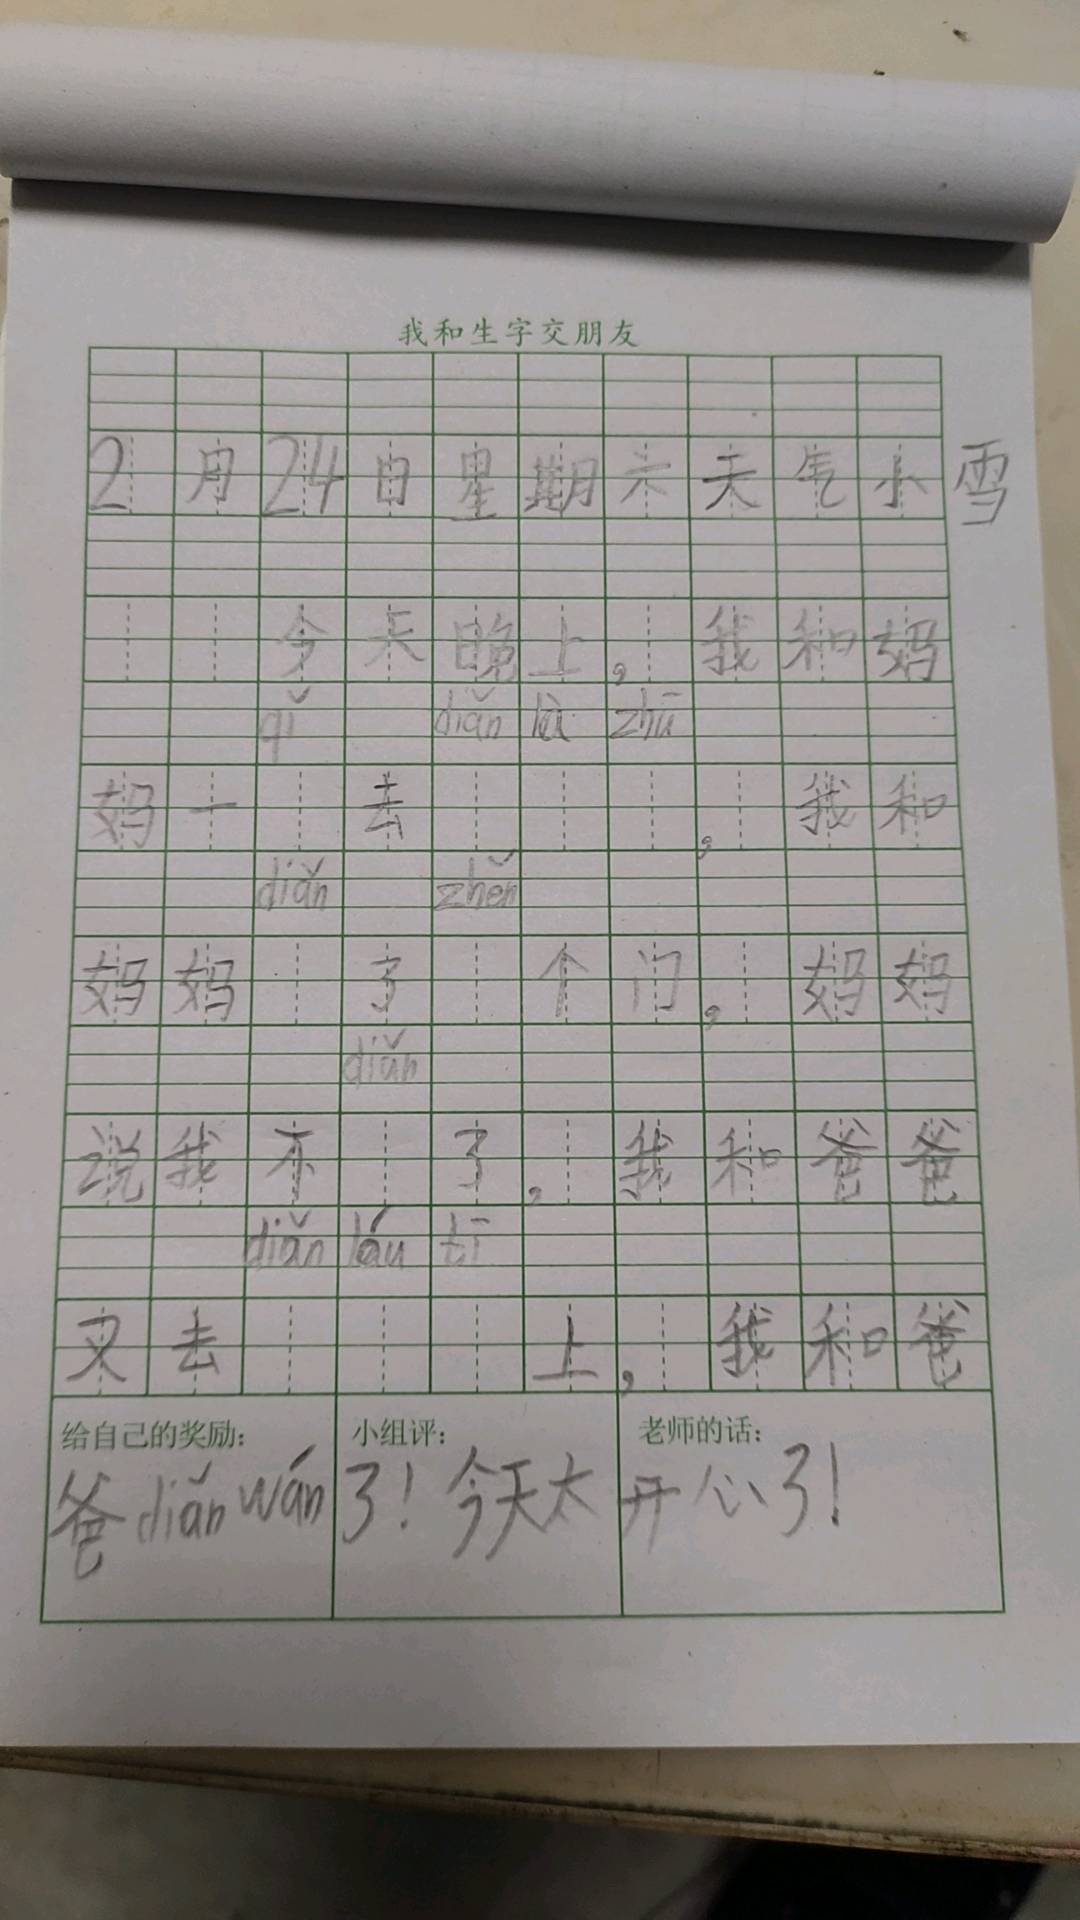 我和生字交朋友
2月24日星期六天气小雪
今天晚上，我和妈
qǐ diǎn là zhū
妈一 去 ，我和
diǎn zhěn
妈妈 了 个门，妈妈
diǎn
说我不 了，我和爸爸
diǎn láu tī
又去 上，我和爸
给自己的奖励： 小组评： 老师的话：
爸diǎn wán了！今天太开心了！